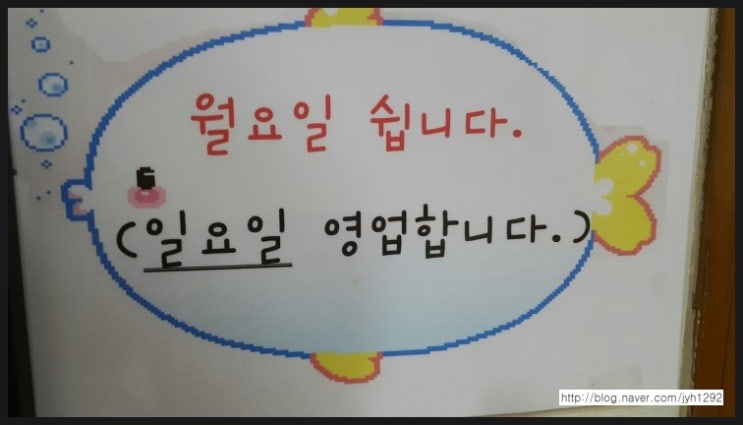 월요일 쉽니다.
(일요일 영업합니다.)
http://blog.naver.com/jyh1292